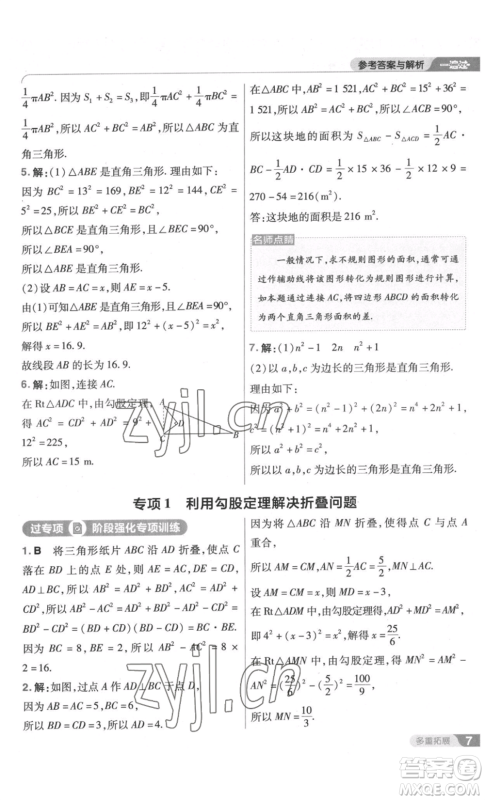 参考答案与解析 一遍过
1/4πAB². 因为 S₁ + S₂ = S₃, 即1/4πAC² + 1/4πBC² =
1/4πAB², 所以 AC² + BC² = AB², 所以△ABC 是直
角三角形.
5. 解: (1)△ABE 是直角三角形. 理由如下:
因为 BC² = 13² = 169, BE² = 12² = 144, CE² =
5² = 25, 所以 BE² + CE² = BC²,
所以△BCE 是直角三角形, 且∠BEC = 90°,
所以∠BEA = 90°,
所以△ABE 是直角三角形.
(2)设 AB = AC = x, 则 AE = x - 5.
由(1)可知△ABE 是直角三角形, 且∠BEA = 90°,
所以 12² + (x - 5)² = x²,
解得 x = 16.9.
故线段 AB 的长为 16.9.
6. 解: 如图, 连接 AC.
在 Rt△ADC 中, 由勾股定理,
得 AC² = CD² + AD² = 9² +
12² = 225,
所以 AC = 15 m.
A
C
D
B
在△ABC 中, AB² = 1 521, AC² + BC² = 15² + 36² =
1 521,
所以 AB² = AC² + BC², 所以∠ACB = 90°.
所以这块地的面积 S△ABC - S△ACD = 1/2AC ·
BC - 1/2AD · CD = 1/2 × 15 × 36 - 1/2 × 12 × 9 =
270 - 54 = 216(m²).
答: 这块地的面积是 216 m².
名师点睛
一般情况下, 求不规则图形的面积, 通常可通
过作辅助线将该图形转化为规则图形进行计算,
如本题是将四边形 ABCD 的面积转化
为两个直角三角形面积的差.
7. 解: (1)n² - 1 2n n² + 1
(2)以 a, b, c 为边长的三角形是直角三角形.
理由如下:
因为 a² + b² = (n² - 1)² + (2n)² = n⁴ + 2n² + 1,
c² = (n² + 1)² = n⁴ + 2n² + 1,
所以 a² + b² = c²,
所以以 a, b, c 为边长的三角形是直角三角形.
专项1 利用勾股定理解决折叠问题
过专项 阶段强化专项训练
1. B 将三角形纸片 ABC 沿 AD 折叠, 使点 C
落在 BD 上的点 E 处, 则有 AE = AC, DE = CD,
AD⊥BC, 所以 AB² - AC² = AD² + BD² - AD² -
CD² = (BD + CD)(BD - CD) = BC · BE.
因为 BC = 8, BE = 2, 所以 AB² - AC² = 8 ×
2 = 16.
2. 解: 如图, 过点 A 作 AD⊥BC 于点 D.
因为将△ABC 沿 MN 折叠, 使点 C 与点 A
重合,
所以 AM = CM, AN = CN = 1/2AC = 5/2.
设 AM = CM = x, 则 MD = 4 - x,
在 Rt△ADM 中, 由勾股定理, 得 AD² + MD² = AM²,
即 3² + (4 - x)² = x², 解得 x = 25/6.
在 Rt△AMN 中, 由勾股定理, 得 MN² = AM² -
AN² = (25/6)² - (5/2)² = 100/9,
所以 MN = 10/3.
多重拓展 7
zyjl.cn
zyjl.cn
答案圈
MXQE.COM